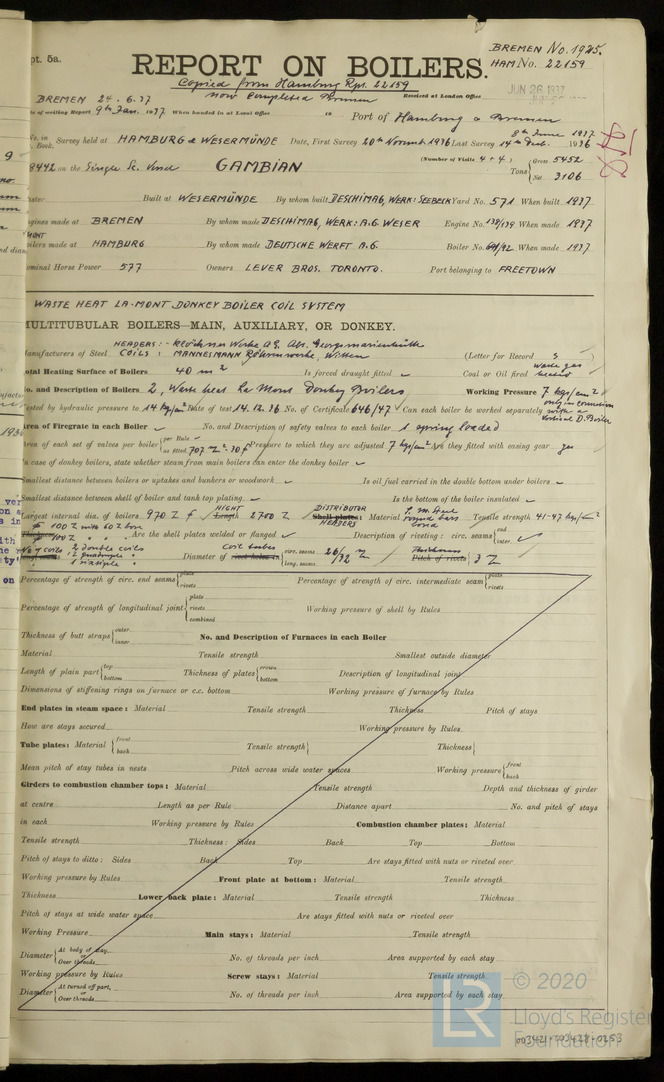 pt. 5a.
BREMEN No. 1925.
HAM No. 22159
REPORT ON BOILERS.
Copied from Hamburg Rpt. 22159
now completed Bremen
Received at London Office
JUN 26 1937
BREMEN 24.6.37
te of writing Report 9th Jan. 1937. When handed in at Local Office 19 Port of Hamburg & Bremen
No. in
Book.
Survey held at HAMBURG & WESERMÜNDE Date, First Survey 20th Novemb. 1936 Last Survey 14th Decb. 1936
8th June 1937
(Number of Visits 4+4.)
8442 on the Single Sc. Vessel GAMBIAN Tons { Gross 5452
Net 3106
Built at WESERMÜNDE By whom built DESCHIMAG, WERK: SEEBECK Yard No. 571 When built 1937
ngines made at BREMEN By whom made DESCHIMAG, WERK: A.G. WESER Engine No. 138/139 When made 1937
oilers made at HAMBURG By whom made DEUTSCHE WERFT A.G. Boiler No. When made 1937
ominal Horse Power 577 Owners LEVER BROS. TORONTO. Port belonging to FREETOWN
WASTE HEAT LA-MONT DONKEY BOILER COIL SYSTEM
MULTITUBULAR BOILERS—MAIN, AUXILIARY, OR DONKEY.
HEADERS:- Klöckner Werke A.G. Abt. Georgsmarienhütte
anufacturers of Steel COILS: MANNESMANN Röhrenwerke, Witten (Letter for Record S )
otal Heating Surface of Boilers 40 m² Is forced draught fitted ✓ Coal or Oil fired waste gas heated
o. and Description of Boilers 2, Waste heat La Mont Donkey Boilers Working Pressure 7 kgs/cm²
only in connection with a Vertical D. Boiler
ested by hydraulic pressure to 14 kg/cm² Date of test 14.12.36 No. of Certificate 646/47 Can each boiler be worked separately
rea of Firegrate in each Boiler ✓ No. and Description of safety valves to each boiler 1 spring loaded
rea of each set of valves per boiler { per Rule ✓
as fitted 707 Pressure to which they are adjusted 7 kg/cm² Are they fitted with easing gear yes
n case of donkey boilers, state whether steam from main boilers can enter the donkey boiler ✓
mallest distance between boilers or uptakes and bunkers or woodwork ✓ Is oil fuel carried in the double bottom under boilers ✓
mallest distance between shell of boiler and tank top plating ✓ Is the bottom of the boiler insulated ✓
argest internal dia. of boilers 970 HIGHT Length 2700 DISTRIBUTOR HEADERS Shell plates: Material S.M. Steel round bars Tensile strength 41-47 kgs/cm²
100 with 60 bore
Are the shell plates welded or flanged ✓ Description of riveting: circ. seams { end
inter. ✓
No of coils 2 Double coils
Diameter of Coil tubes { circ. seams 26/32
long. seams Thickness Pitch of rivets } 3
Percentage of strength of circ. end seams { plate
rivets Percentage of strength of circ. intermediate seam { plate
rivets
Percentage of strength of longitudinal joint { plate
rivets
combined Working pressure of shell by Rules
Thickness of butt straps { outer
inner No. and Description of Furnaces in each Boiler
Material Tensile strength Smallest outside diameter
Length of plain part { top
bottom Thickness of plates { crown
bottom Description of longitudinal joint
Dimensions of stiffening rings on furnace or c.c. bottom Working pressure of furnace by Rules
End plates in steam space: Material Tensile strength Thickness Pitch of stays
How are stays secured Working pressure by Rules
Tube plates: Material { front
back Tensile strength Thickness
Mean pitch of stay tubes in nests Pitch across wide water spaces Working pressure { front
back
Girders to combustion chamber tops: Material Tensile strength Depth and thickness of girder
at centre Length as per Rule Distance apart No. and pitch of stays
in each Working pressure by Rules Combustion chamber plates: Material
Tensile strength Thickness: Sides Back Top Bottom
Pitch of stays to ditto: Sides Back Top Are stays fitted with nuts or riveted over
Working pressure by Rules Front plate at bottom: Material Tensile strength
Thickness Lower back plate: Material Tensile strength Thickness
Pitch of stays at wide water space Are stays fitted with nuts or riveted over
Working Pressure Main stays: Material Tensile strength
Diameter { At body of stay,
or
Over threads No. of threads per inch Area supported by each stay
Working pressure by Rules Screw stays: Material Tensile strength
Diameter { At turned off part,
or
Over threads No. of threads per inch Area supported by each stay
LR
© 2020
Lloyd's Register
Foundation
003421-003428-0253